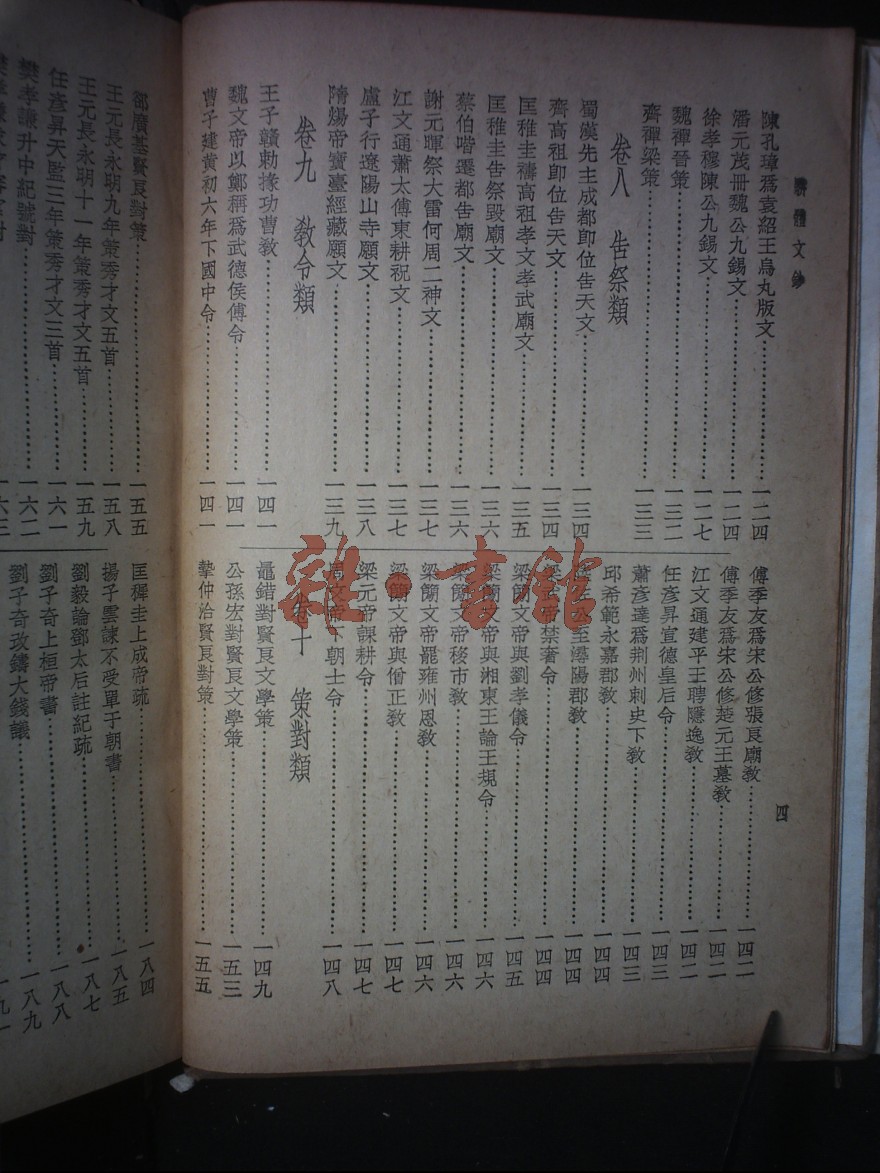 駢體文鈔
四
陳孔璋爲袁紹王烏丸版文⋯⋯一二四
潘元茂冊魏公九錫文⋯⋯一二四
徐孝穆陳公九錫文⋯⋯一二七
魏禪晉策⋯⋯一三二
齊禪梁策⋯⋯一三三
卷八 告祭類
蜀漢先主成都卽位告天文⋯⋯一三四
齊高祖卽位告天文⋯⋯一三四
匡稚圭禱高祖孝文孝武廟文⋯⋯一三五
匡稚圭告祭毀廟文⋯⋯一三六
蔡伯喈遷都告廟文⋯⋯一三六
謝元暉祭大雷何周二神文⋯⋯一三七
江文通蕭太傅東耕祝文⋯⋯一三七
盧子行遼陽山寺願文⋯⋯一三八
隋煬帝寶臺經藏願文⋯⋯一三九
卷九 敎令類
王子贛敕掾功曹敎⋯⋯一四一
魏文帝以鄭稱爲武德侯傅令⋯⋯一四一
曹子建黃初六年下國中令⋯⋯一四一
傅季友爲宋公修張良廟敎⋯⋯一四二
傅季友爲宋公修楚元王墓敎⋯⋯一四二
江文通建平王聘隱逸敎⋯⋯一四二
任彥昇宣德皇后令⋯⋯一四三
蕭彥達爲荆州刺史下敎⋯⋯一四三
邱希範永嘉郡敎⋯⋯一四四
至潯陽郡敎⋯⋯一四四
帝禁奢令⋯⋯一四四
梁簡文帝與劉孝儀令⋯⋯一四五
梁簡文帝與湘東王論王規令⋯⋯一四六
梁簡文帝移市敎⋯⋯一四六
梁簡文帝罷雍州恩敎⋯⋯一四六
梁簡文帝與僧正敎⋯⋯一四七
梁元帝課耕令⋯⋯一四七
周文帝下朝士令⋯⋯一四八
卷十 策對類
鼂錯對賢良文學策⋯⋯一四九
公孫宏對賢良文學策⋯⋯一五三
摯仲治賢良對策⋯⋯一五五
郤廣基賢良對策⋯⋯一五五
王元長永明九年策秀才文五首⋯⋯一五八
王元長永明十一年策秀才文五首⋯⋯一五九
任彥昇天監三年策秀才文三首⋯⋯一六一
樊孝謙升中紀號對⋯⋯一六二
一六三
匡稚圭上成帝疏⋯⋯一八四
揚子雲諫不受單于朝書⋯⋯一八五
劉毅論鄧太后註紀疏⋯⋯一八七
劉子奇上桓帝書⋯⋯一八八
劉子奇改鑄大錢議⋯⋯一八九
雜·書館